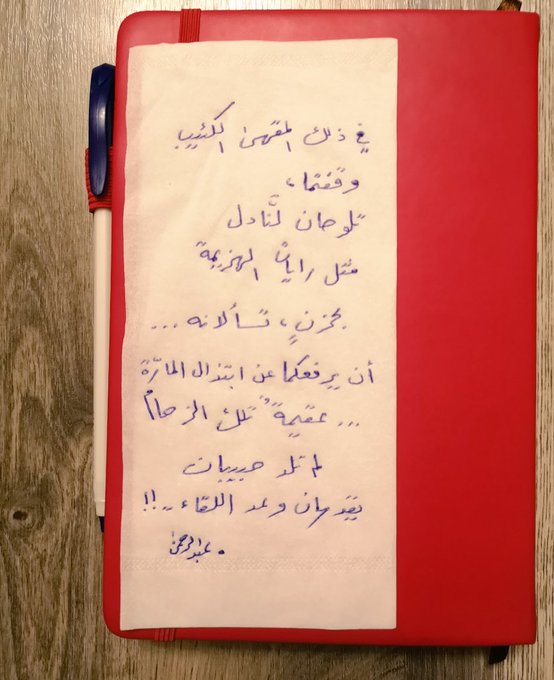 في ذلك المقهى الكئيب
وقفتما،
تلوحان لنَّادل
مثل راياتْ الهزيمة
بحزنٍ، تسألانه ...
أن يرفعكما عن ابتذال المارّة
... عقيمةٌ تلك الزحامُ
لم تلد حبيبان
يقدمان وعد اللقاء..!!
. عبدالرحمن